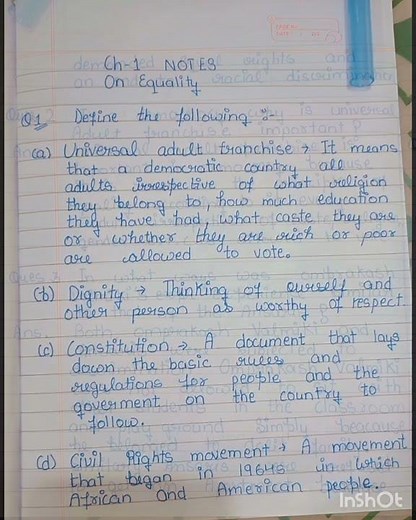 Ch-1 NOTES
On Equality
Q1 Define the following :-
(a) Universal adult franchise → It means
that a democratic country all
adults irrespective of what religion
they belong to, how much education
they have had, what caste they are
or whether they are rich or poor
are allowed to vote.
(b) Dignity → Thinking of ourself and
other person as worthy of respect
(c) Constitution → A document that lays
down the basic rules and
regulations for people and the
goverment on the country to
follow.
(d) Civil Rights movement → A movement
that began in 1964s in which
African and American people.
InShOt